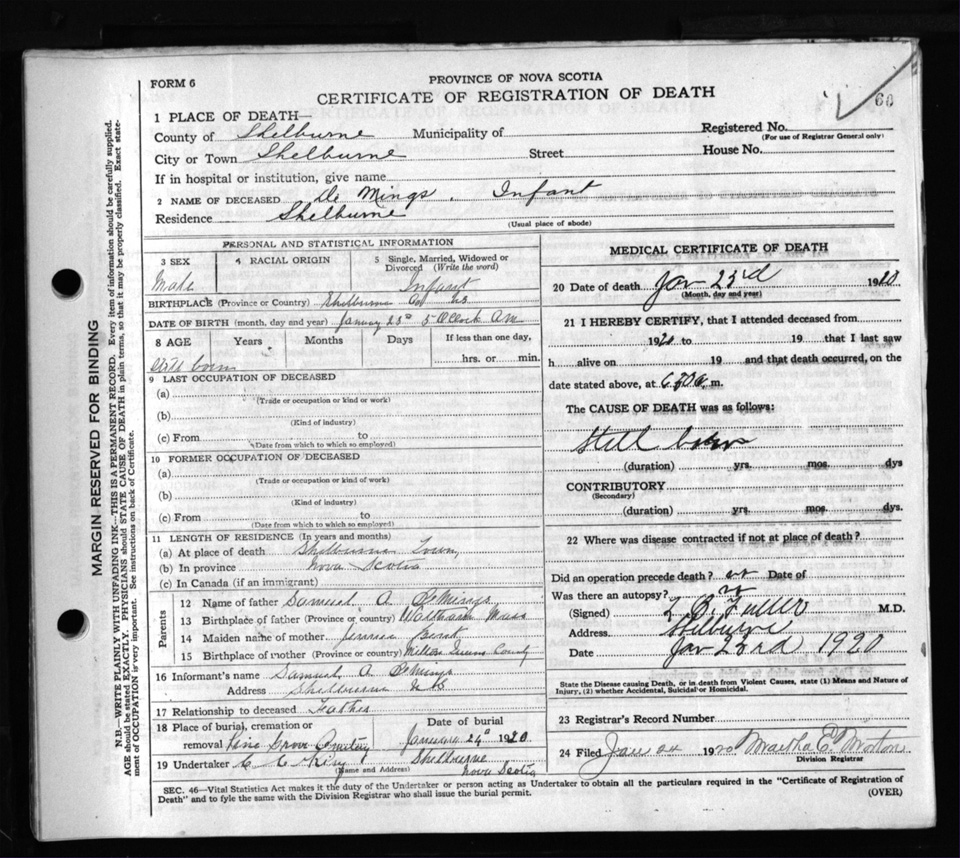 FORM 6
PROVINCE OF NOVA SCOTIA
CERTIFICATE OF REGISTRATION OF DEATH
60
1 PLACE OF DEATH—
County of Shelburne Municipality of
Registered No.
(For use of Registrar General only)
City or Town Shelburne Street House No.
If in hospital or institution, give name
2 NAME OF DECEASED De Mings, Infant
Residence Shelburne
(Usual place of abode)
PERSONAL AND STATISTICAL INFORMATION
3 SEX 4 RACIAL ORIGIN 5 Single, Married, Widowed or Divorced (Write the word)
Male Infant
BIRTHPLACE (Province or Country) Shelburne Co NS
DATE OF BIRTH (month, day and year) January 23d 5 O'Clock AM
8 AGE Years Months Days If less than one day,
hrs. or min.
Still born
9 LAST OCCUPATION OF DECEASED
(a)
(Trade or occupation or kind or work)
(b)
(Kind of industry)
(c) From to
(Date from which to which so employed)
10 FORMER OCCUPATION OF DECEASED
(a)
(Trade or occupation or kind of work)
(b)
(Kind of industry)
(c) From to
(Date from which to which so employed)
11 LENGTH OF RESIDENCE (In years and months)
(a) At place of death Shelburne Town
(b) In province Nova Scotia
(c) In Canada (if an immigrant)
Parents
12 Name of father Samuel A. DeMings
13 Birthplace of father (Province or country) Waltham Mass
14 Maiden name of mother Jennie
15 Birthplace of mother (Province or country) Queens County
16 Informant's name Samuel A DeMings
Address Shelburne NS
17 Relationship to deceased Father
18 Place of burial, cremation or removal Pine Grove Cemetery
Date of burial January 24th 1920
19 Undertaker C C King Shelburne
(Name and Address) Nova Scotia
MEDICAL CERTIFICATE OF DEATH
20 Date of death Jan 23rd 1920
(Month, day and year)
21 I HEREBY CERTIFY, that I attended deceased from
19 to 19 that I last saw
h alive on 19 and that death occurred, on the
date stated above, at m.
The CAUSE OF DEATH was as follows:
Still born
(duration) yrs. mos. dys
CONTRIBUTORY
(Secondary)
(duration) yrs. mos. dys.
22 Where was disease contracted if not at place of death?
Did an operation precede death? Date of
Was there an autopsy?
(Signed) Fuller M.D.
Address Shelburne
Date Jan 23rd 1920
State the Disease causing Death, or in death from Violent Causes, state (1) Means and Nature of
Injury, (2) whether Accidental, Suicidal or Homicidal.
23 Registrar's Record Number
24 Filed Jan 24 1920 Martha E. Morton
Division Registrar
SEC. 46—Vital Statistics Act makes it the duty of the Undertaker or person acting as Undertaker to obtain all the particulars required in the "Certificate of Registration of
Death" and to fyle the same with the Division Registrar who shall issue the burial permit.
(OVER)
MARGIN RESERVED FOR BINDING
N.B.—WRITE PLAINLY WITH UNFADING INK—THIS IS A PERMANENT RECORD. Every item of information should be carefully supplied.
AGE should be stated EXACTLY. PHYSICIANS should STATE CAUSE OF DEATH in plain terms, so that it may be properly classified. Exact state-
ment of OCCUPATION is very important. See instructions on back of Certificate.